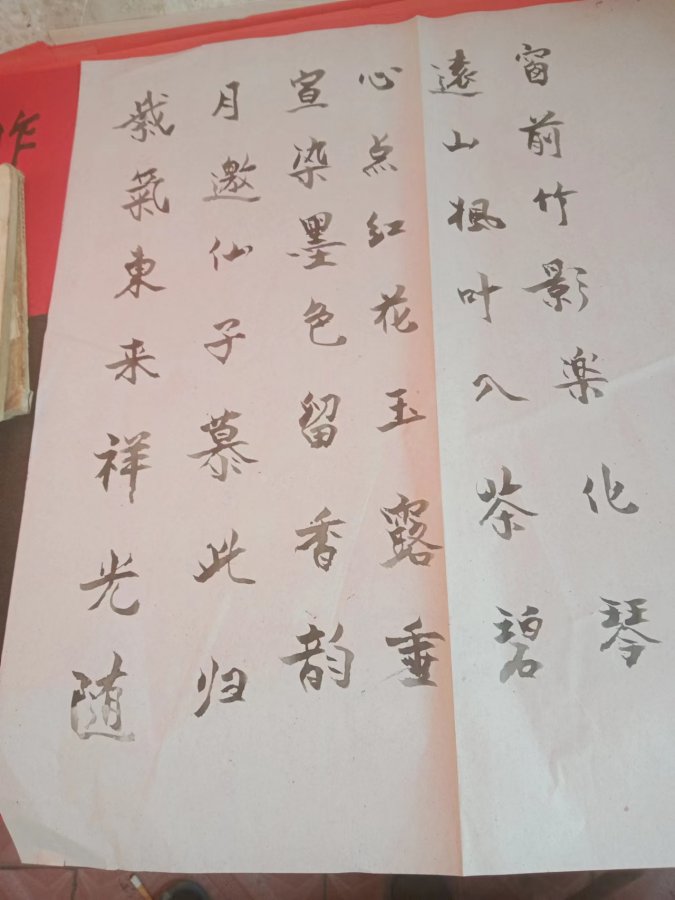 窗前竹影楽化琴
遠山楓叶入茶碧
心点红花玉露垂
宣染墨色留香韵
月邀仙子慕此归
紫氣東来祥光随